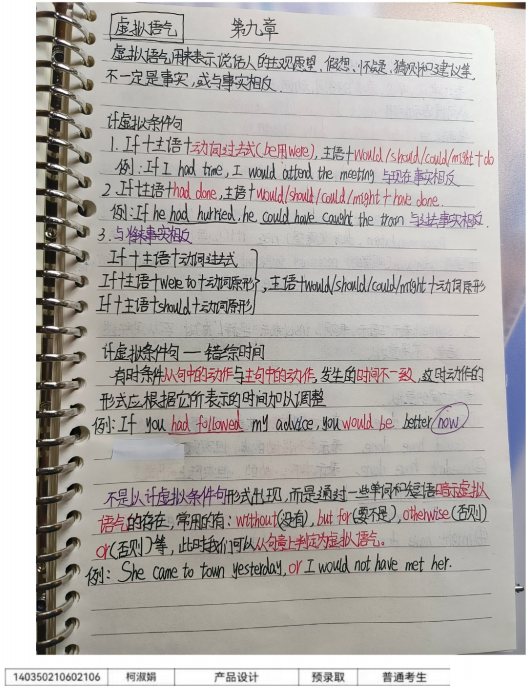 虚拟语气 第九章
虚拟语气用来表示说话人的主观愿望、假想、怀疑、猜测和建议等,
不一定是事实,或与事实相反.
if虚拟条件句
1. If+主语+动词过去式(be用were), 主语+would/should/could/might+do
例: If I had time, I would attend the meeting 与现在事实相反
2. If+主语+had done, 主语+would/should/could/might+have done.
例: If he had hurried, he could have caught the train 与过去事实相反.
3. 与将来事实相反
If+主语+动词过去式
If+主语+were to+动词原形}, 主语+would/should/could/might+动词原形
If+主语+should+动词原形
if虚拟条件句 — 错综时间
有时条件从句中的动作与主句中的动作,发生的时间不一致,这时动作的
形式应根据它所表示的时间加以调整
例: If you had followed my advice, you would be better now
不是以if虚拟条件句形式出现,而是通过一些单词和短语暗示虚拟
语气的存在,常用的有: without(没有), but for(要不是), otherwise(否则)
or(否则)等,此时我们可以从句意上判定为虚拟语气。
例: She came to town yesterday, or I would not have met her.
140350210602106 柯淑娟 产品设计 预录取 普通考生